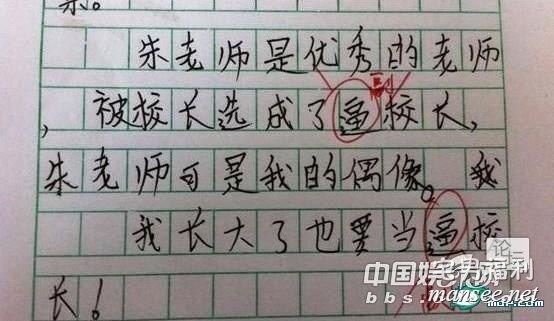 朱老师是优秀的老师
副
，被校长选成了逼校长，
朱老师可是我的偶像。我
我长大了也要当逼校
长！
中国娱乐
宅男福利
bbs.
mansee.net